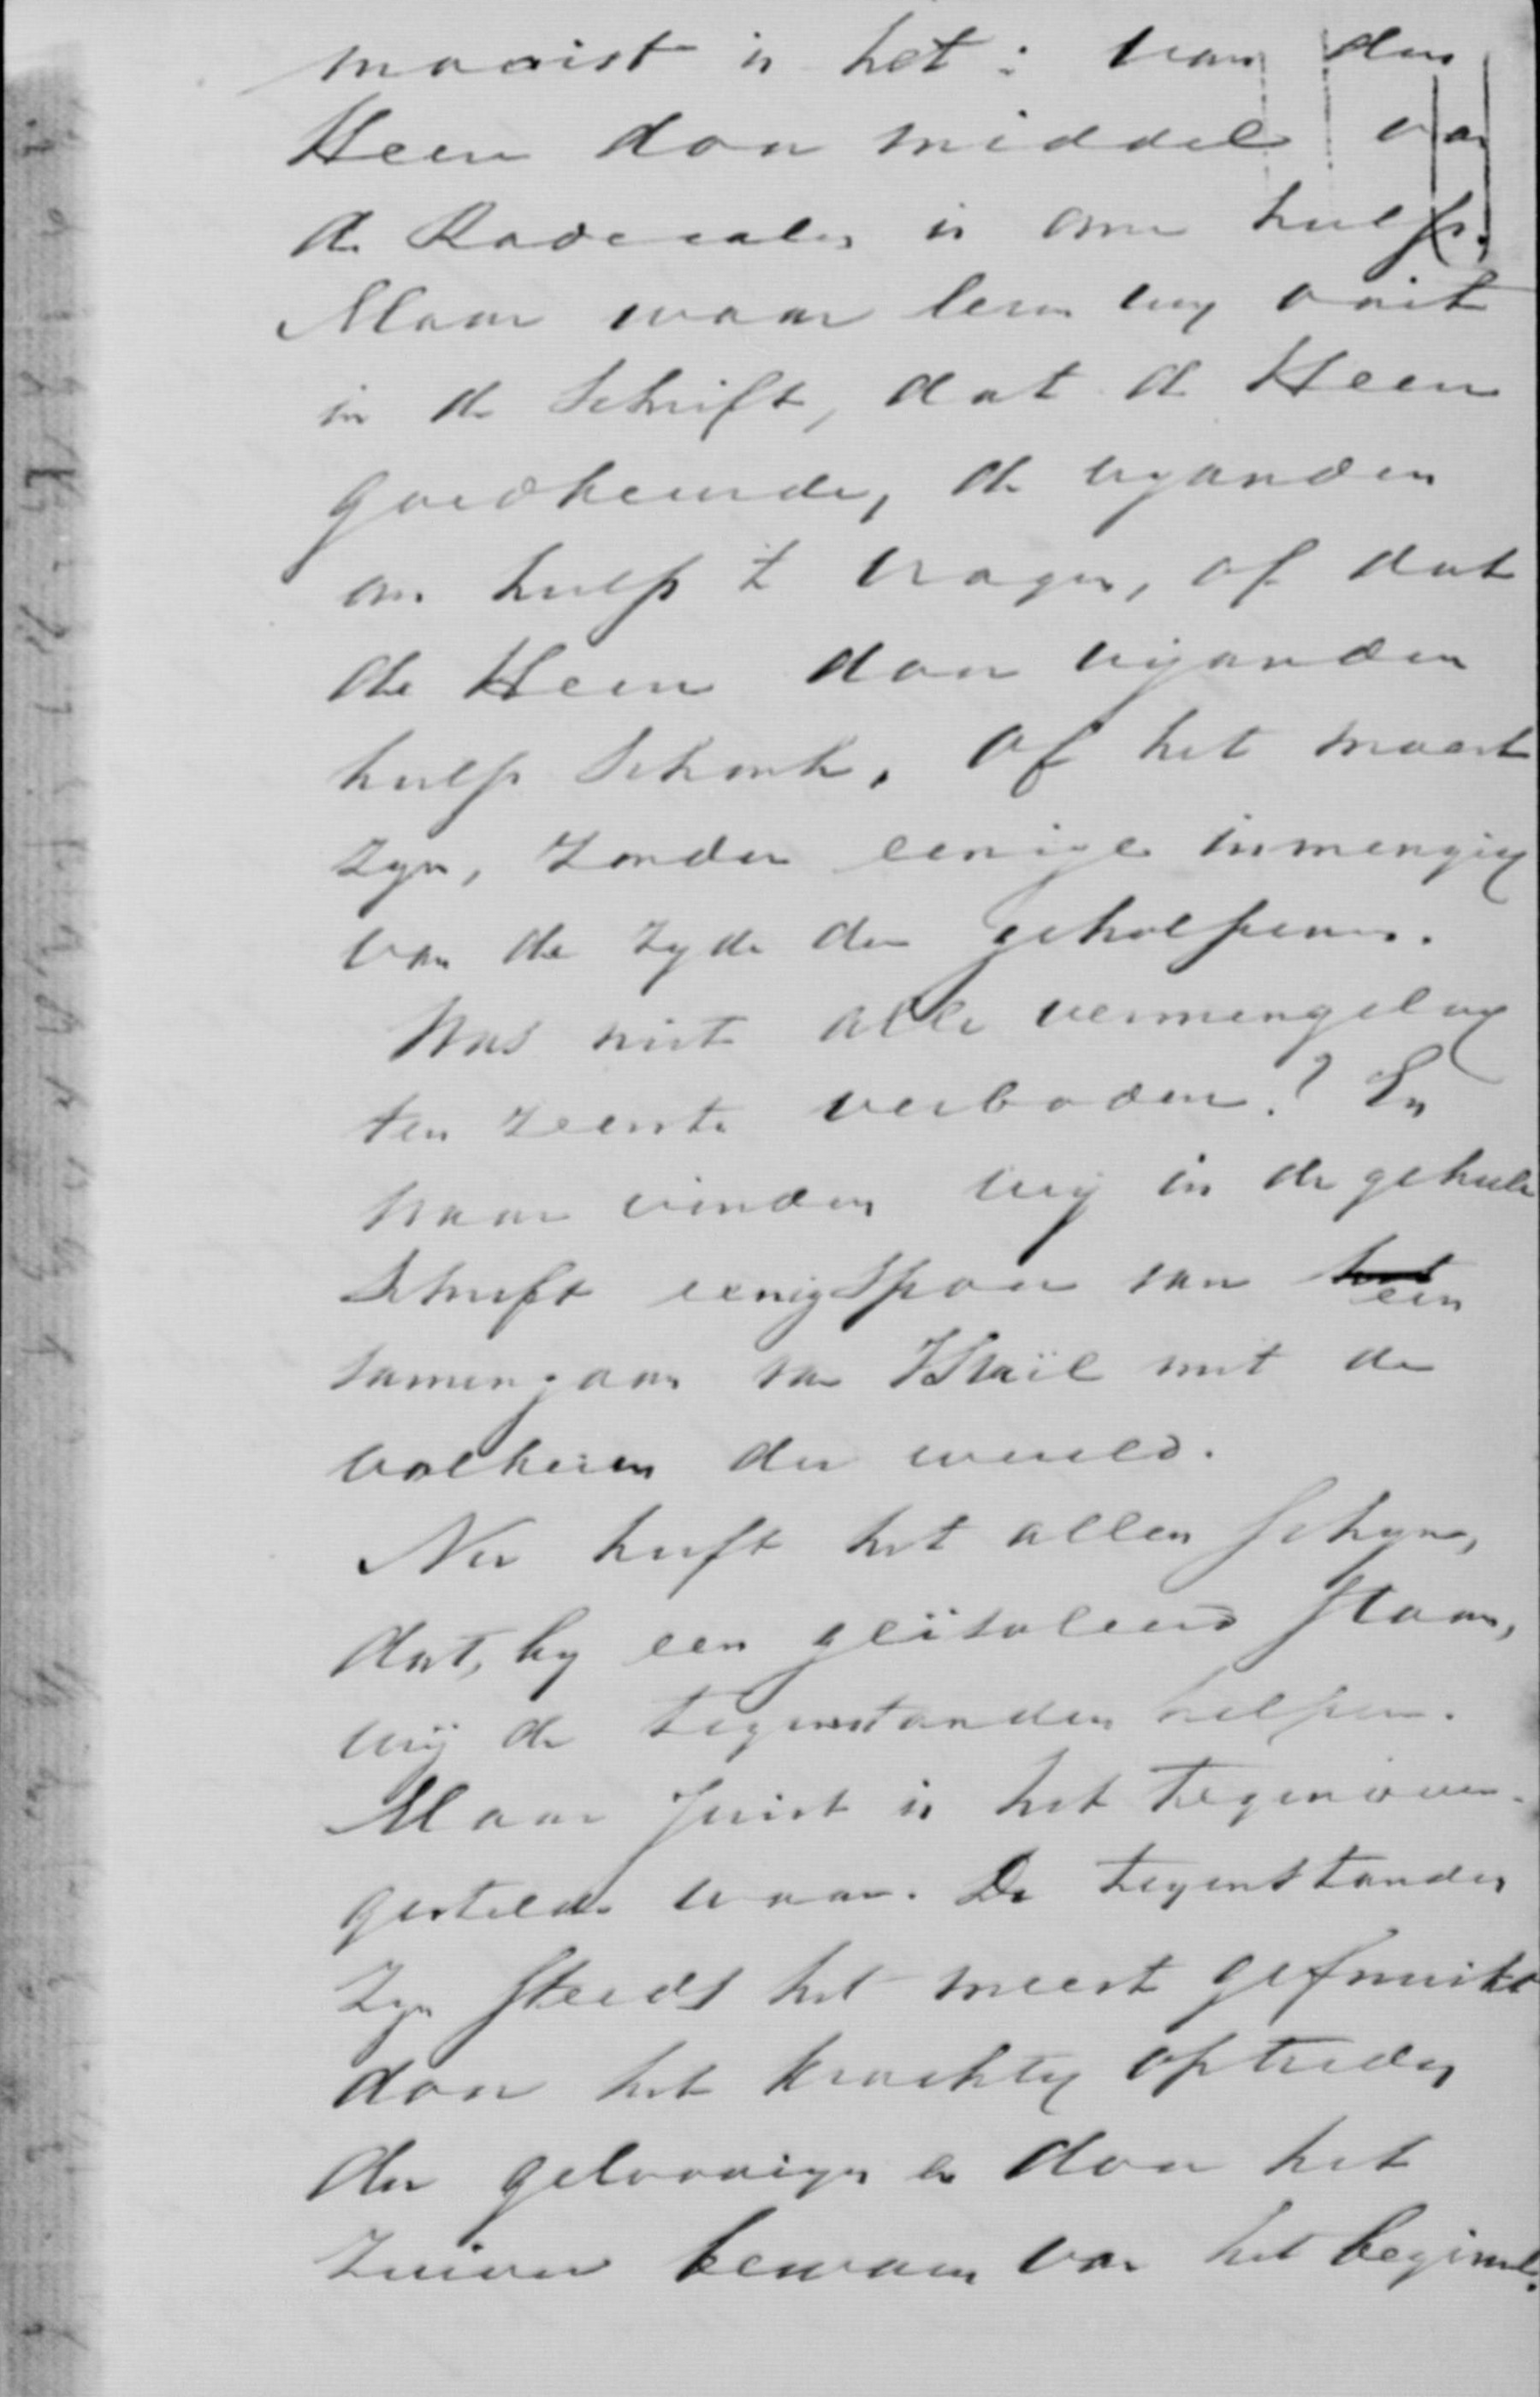 mooist is het: van den
Heere door middel van
de Radicalen is onze hulp.
Maar waar lezen wy ooit
in de Schrift, dat de Heere
goedkeurde, de vyanden
om hulp te vragen, of dat
de Heere door vijanden
hulp schonk. Of het moest
zyn, zonder eenige inmenging
van de zyde der geholpenen.
Was niet alle vermengeling
ten zeerste verboden? En
waar vinden wij in de geheele
Schrift eenig spoor van een
samengaan van Israël met de
volkeren der wereld.
Nu heeft het allen schyn,
dat, by een geïsoleerd staan,
wij de tegenstanders helpen.
Maar juist is het tegenover-
gestelde waar. De tegenstanders
zyn steeds het meest gefnuikt
door het krachtig optreden
der geloovigen en door het
zuiver bewaren van het beginsel.